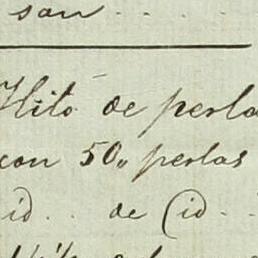 son . . .
Hilo de perla
con 50, perlas
id . . de (id . .